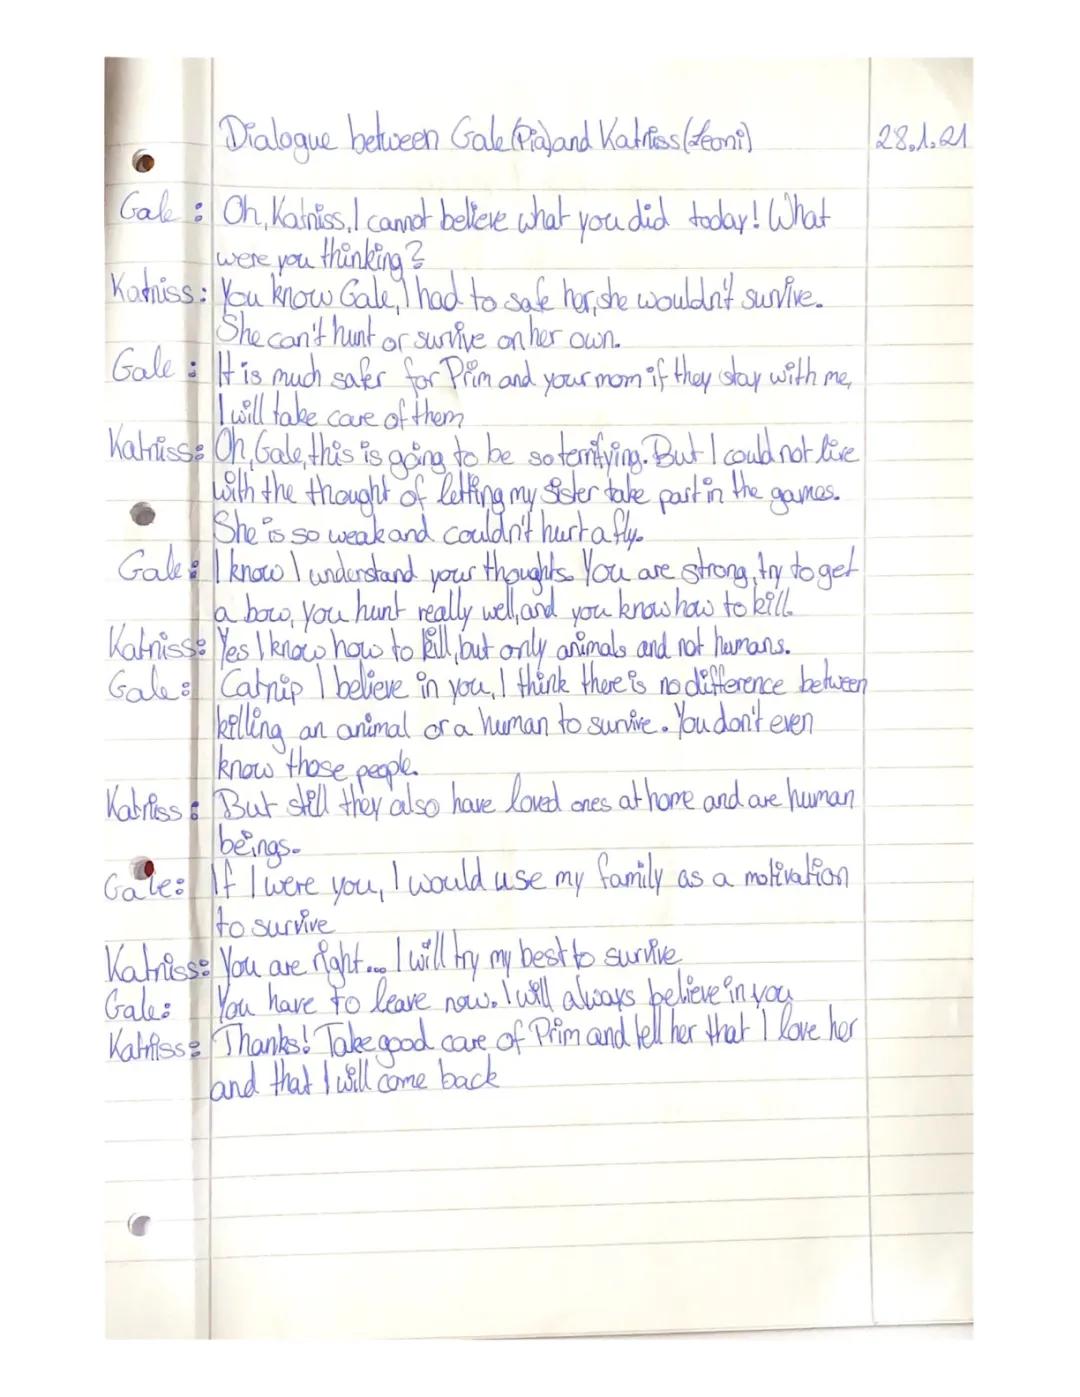 Dialogue between Gale (Pia) and Katniss (Leoni) 28.1.21
Gale : Oh, Katniss, I cannot believe what you did today! What
were you thinking?
Katniss: You know Gale, I had to safe her, she wouldn't survive.
She can't hunt or survive on her own.
Gale : It is much safer for Prim and your mom if they stay with me,
I will take care of them
Katniss: Oh, Gale, this is going to be so terrifying. But I could not live
with the thought of letting my sister take part in the games.
She is so weak and couldn't hurt a fly.
Gale: I know I understand your thoughts. You are strong, try to get
a bow, you hunt really well, and you know how to kill.
Katniss: Yes I know how to kill, but only animals and not humans.
Gale: Catnip I believe in you, I think there is no difference between
killing an animal or a human to survive. You don't even
know those people.
Katniss: But still they also have loved ones at home and are human
beings.
Gale: If I were you, I would use my family as a motivation
to survive
Katniss: You are right... I will try my best to survive
Gale: You have to leave now. I will always believe in you
Katniss: Thanks! Take good care of Prim and tell her that I love her
and that I will come back